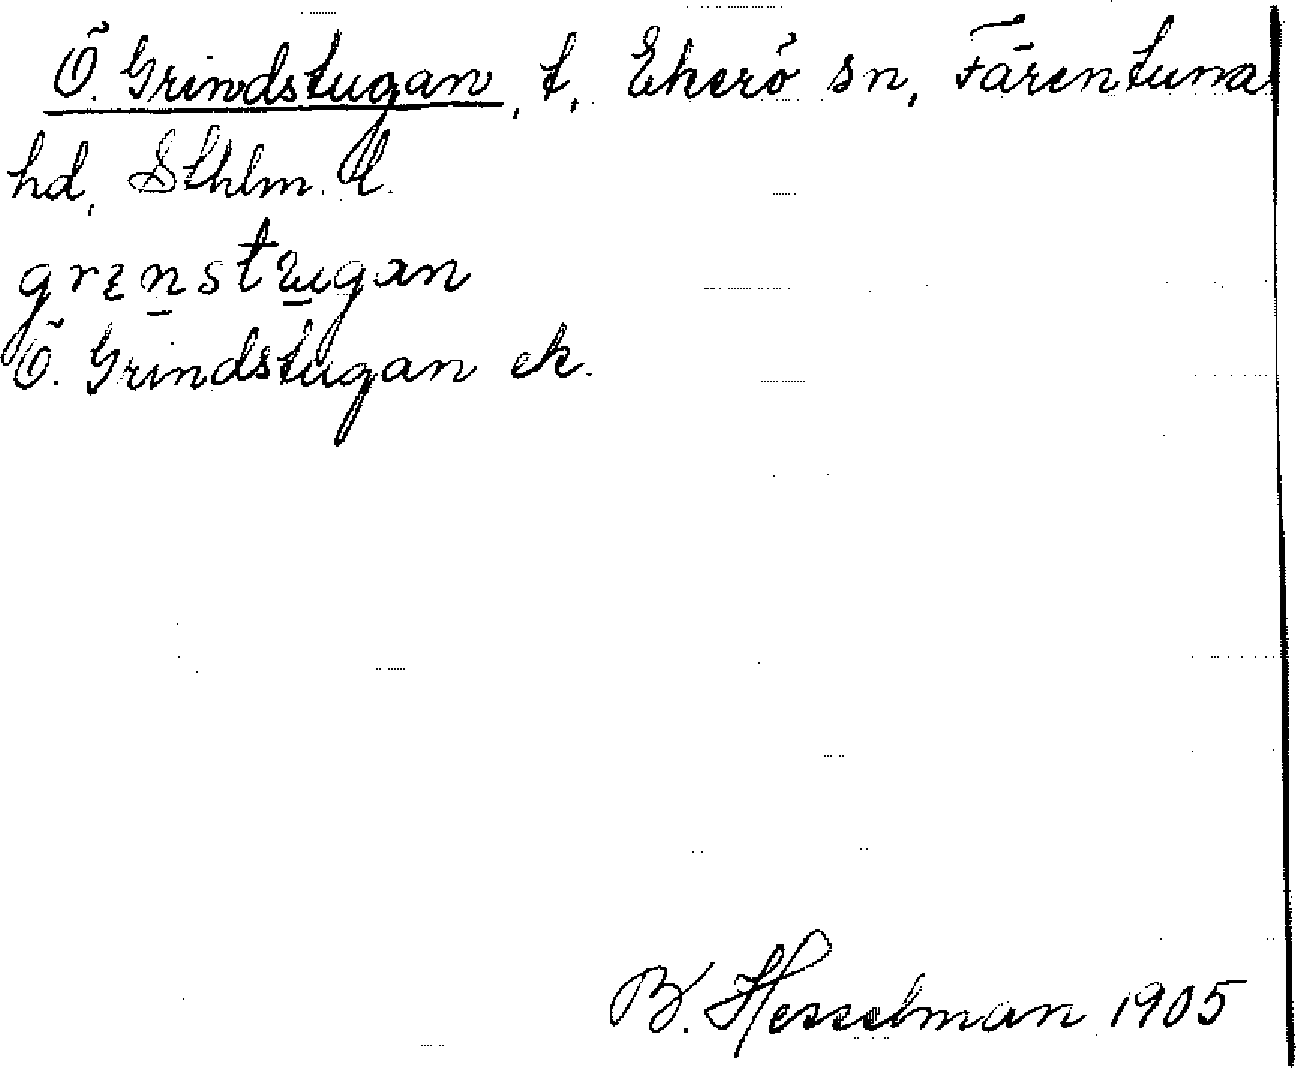 Ö. Grindstugan, t, Ekerö sn, Färentuna
hd, Sthlm. l.
grɩn̠stu̠gan
Ö. Grindstugan ek.
B. Hesselman 1905